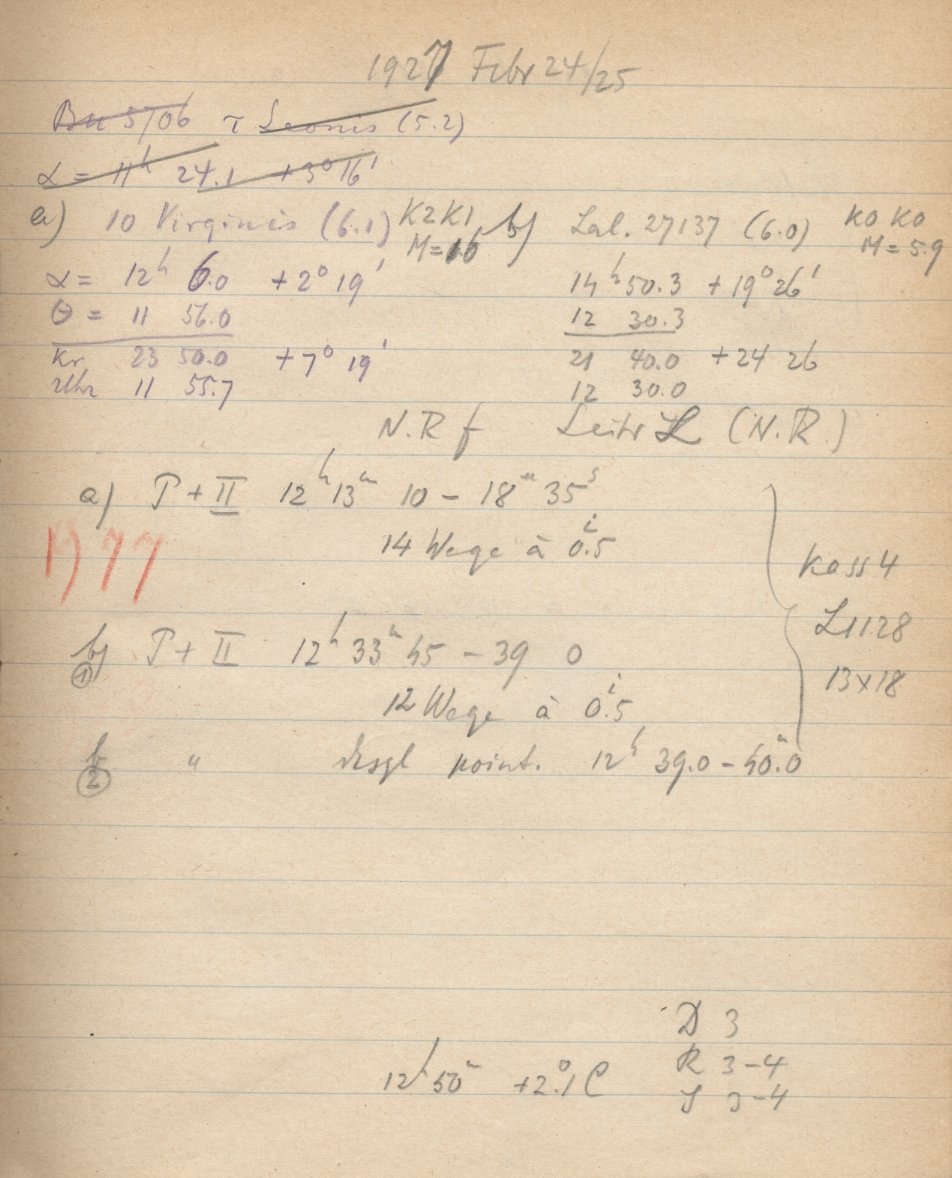 1927 Febr 24/25
Bu 5706 τ Leonis (5.2)
α = 11h 24.1 +3° 16'
a) 10 Virginis (6.1) K2 K1 b) Lal. 27137 (6.0) K0 K0
M= M = 5.9
α = 12h 6.0 +2° 19' 14h 50.3 +19° 26'
θ = 11 56.0 12 30.3
Kr 23 50.0 +7° 19' 21 40.0 +24 26
Uhr 11 55.7 12 30.0
N.R f Leitr L (N.R.)
a) P + II 12h 13m 10 – 18m 35s
14 Wege à 0.i5
1977
Kass 4
L1128
13x18
b) P + II 12h 33m 45 – 39 0
①
12 Wege à 0.i5
b " desgl point. 12h 39.0 – 40.0m
②
D 3
R 3-4
12h 50m +2.°1 C
S 3-4